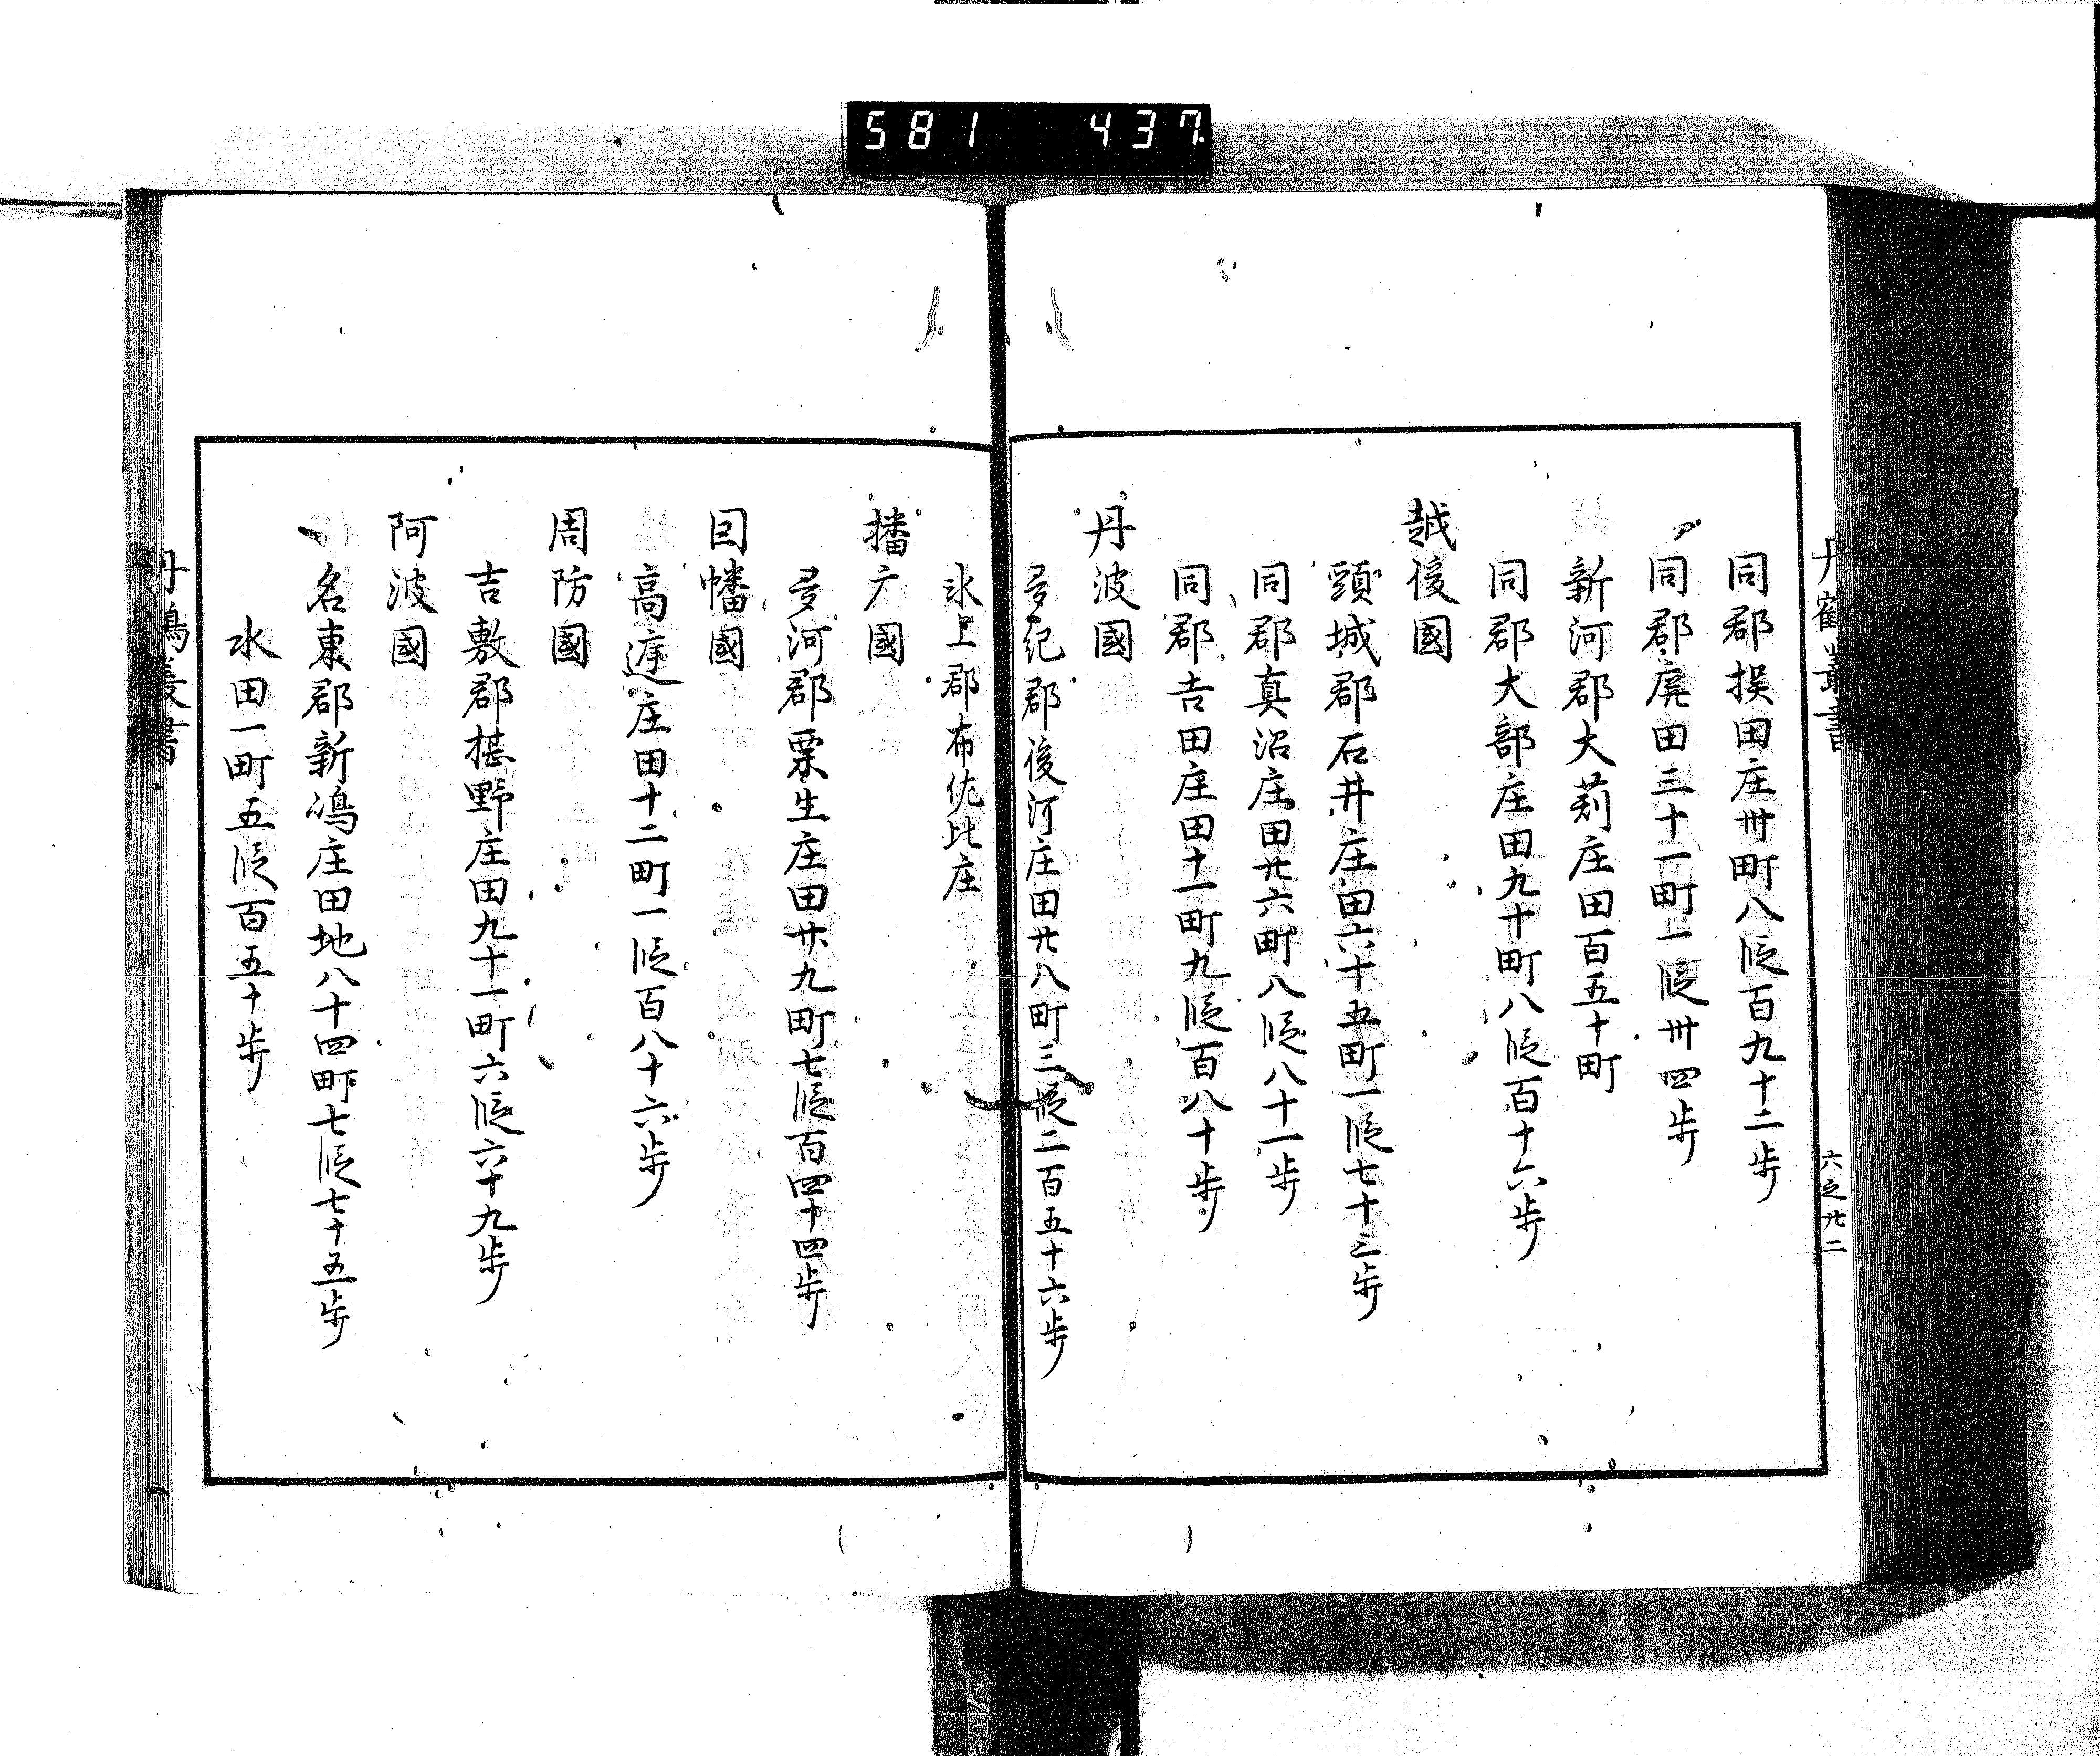 581 437
丹鶴叢書
六之廿二
同郡挨田庄卅町八段百九十二歩
同郡廃田三十一町一段卅四歩
新河郡大荊庄田百五十町
同郡大部庄田九十町八段百十六歩
越後國
頸城郡石井庄田六十五町一段七十二歩
同郡真沼庄田廿六町八段八十一歩
同郡吉田庄田十一町九段百八十歩
丹波國
多紀郡後河庄田廿八町三段二百五十六歩
氷上郡布佐比庄
播广國
多河郡粟生庄田廿九町七段百四十四歩
因幡國
高庭庄田十二町一段百八十六歩
周防國
吉敷郡椹野庄田九十一町六段六十九歩
阿波國
名東郡新嶋庄田地八十四町七段七十五歩
水田一町五段百五十歩
丹鶴叢書